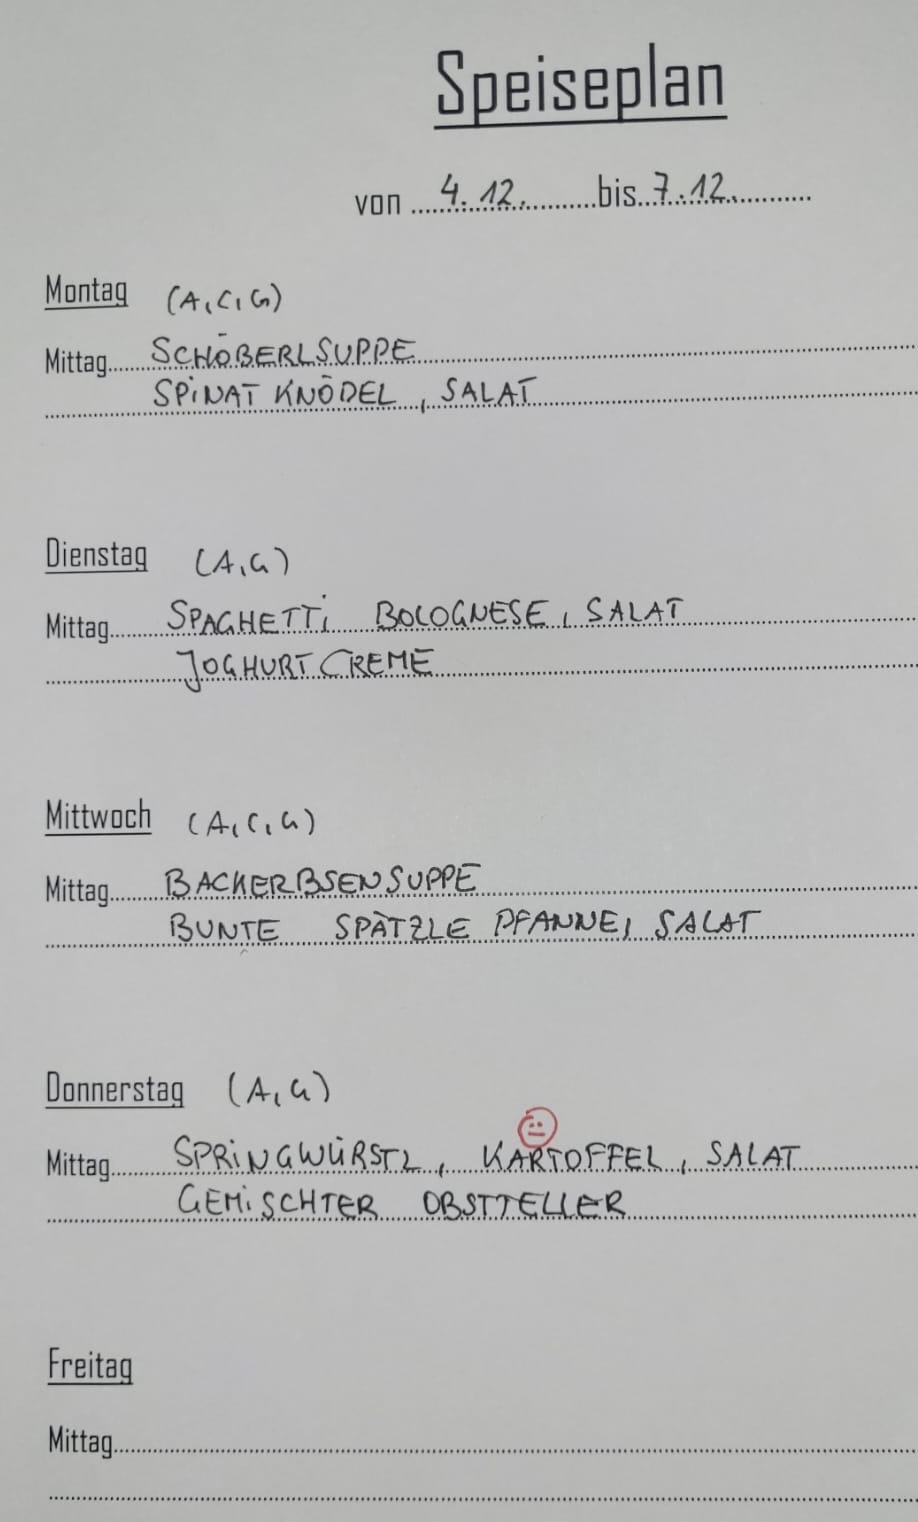 Speiseplan
von 4.12. bis 7.12.
Montag (A, C, G)
Mittag SCHÖBERLSUPPE
SPINAT KNÖDEL, SALAT
Dienstag (A, G)
Mittag SPAGHETTI BOLOGNESE, SALAT
JOGHURT CREME
Mittwoch (A, C, G)
Mittag BACKERBSENSUPPE
BUNTE SPÄTZLE PFANNE, SALAT
Donnerstag (A, G)
Mittag SPRINGWÜRSTL, KARTOFFEL, SALAT
GEMISCHTER OBSTTELLER
Freitag
Mittag